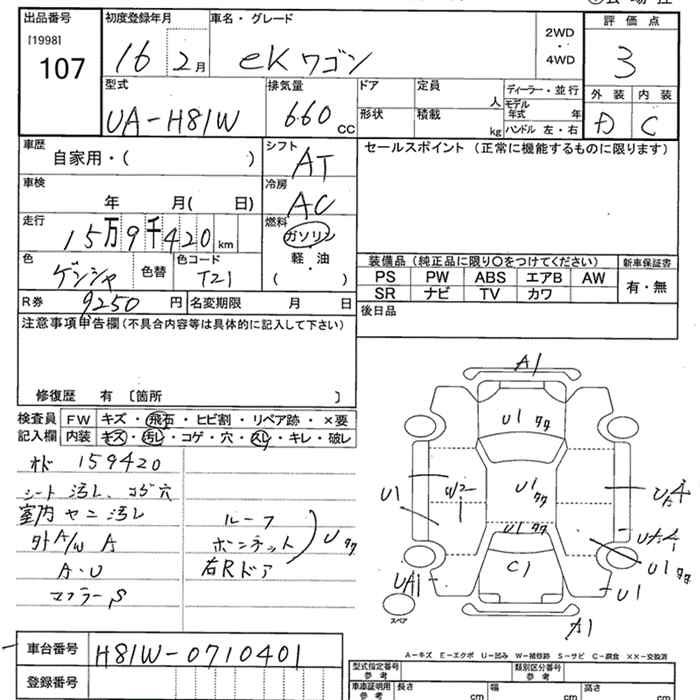 出品番号 初度登録年月 車名・グレード 評価点
[1998] 107 16 2月 eKワゴン 2WD・4WD 3
型式 排気量 ドア 定員 人 ディーラー・並行 外装 内装
UA-H81W 660 CC 形状 積載 kg モデル年式 年 ハンドル 左・右 D C
車歴 自家用・( ) シフト AT セールスポイント (正常に機能するものに限ります)
車検 年 月( 日) 冷房 AC
走行 15万9千420km 燃料 ガソリン
軽・油
( )
色 ゲンシャ 色替 色コード T21
装備品 (純正品に限り○をつけてください) 新車保証書
PS PW ABS エアB AW 有・無
SR ナビ TV カワ
R券 9250円 名変期限 月 日 後日品
注意事項申告欄(不具合内容等は具体的に記入して下さい)
修復歴 有 〔箇所 〕
検査員 FW キズ・飛石・ヒビ割・リペア跡・×要
記入欄 内装 キズ・汚レ・コゲ・穴・スレ・キレ・破レ
オド 159420
シート 汚レ、コゲ穴
室内 ヤニ汚レ
外A/W A
A・U
マフラーS
ルーフ
ボンネット U タタ
右Rドア
A1
U1 タタ
U1
W2
1
U1 タタ
U1 タタ
C1
UA1
U1 タタ
U1
A1
スペア
A-キズ E-エクボ U-凹み W-補修跡 S-サビ C-腐食 ××-交換済
車台番号 H81W-0710401
登録番号
型式指定番号 参考 類別区分番号 参考
車庫証明用 参考 長さ cm 幅 cm 高さ cm